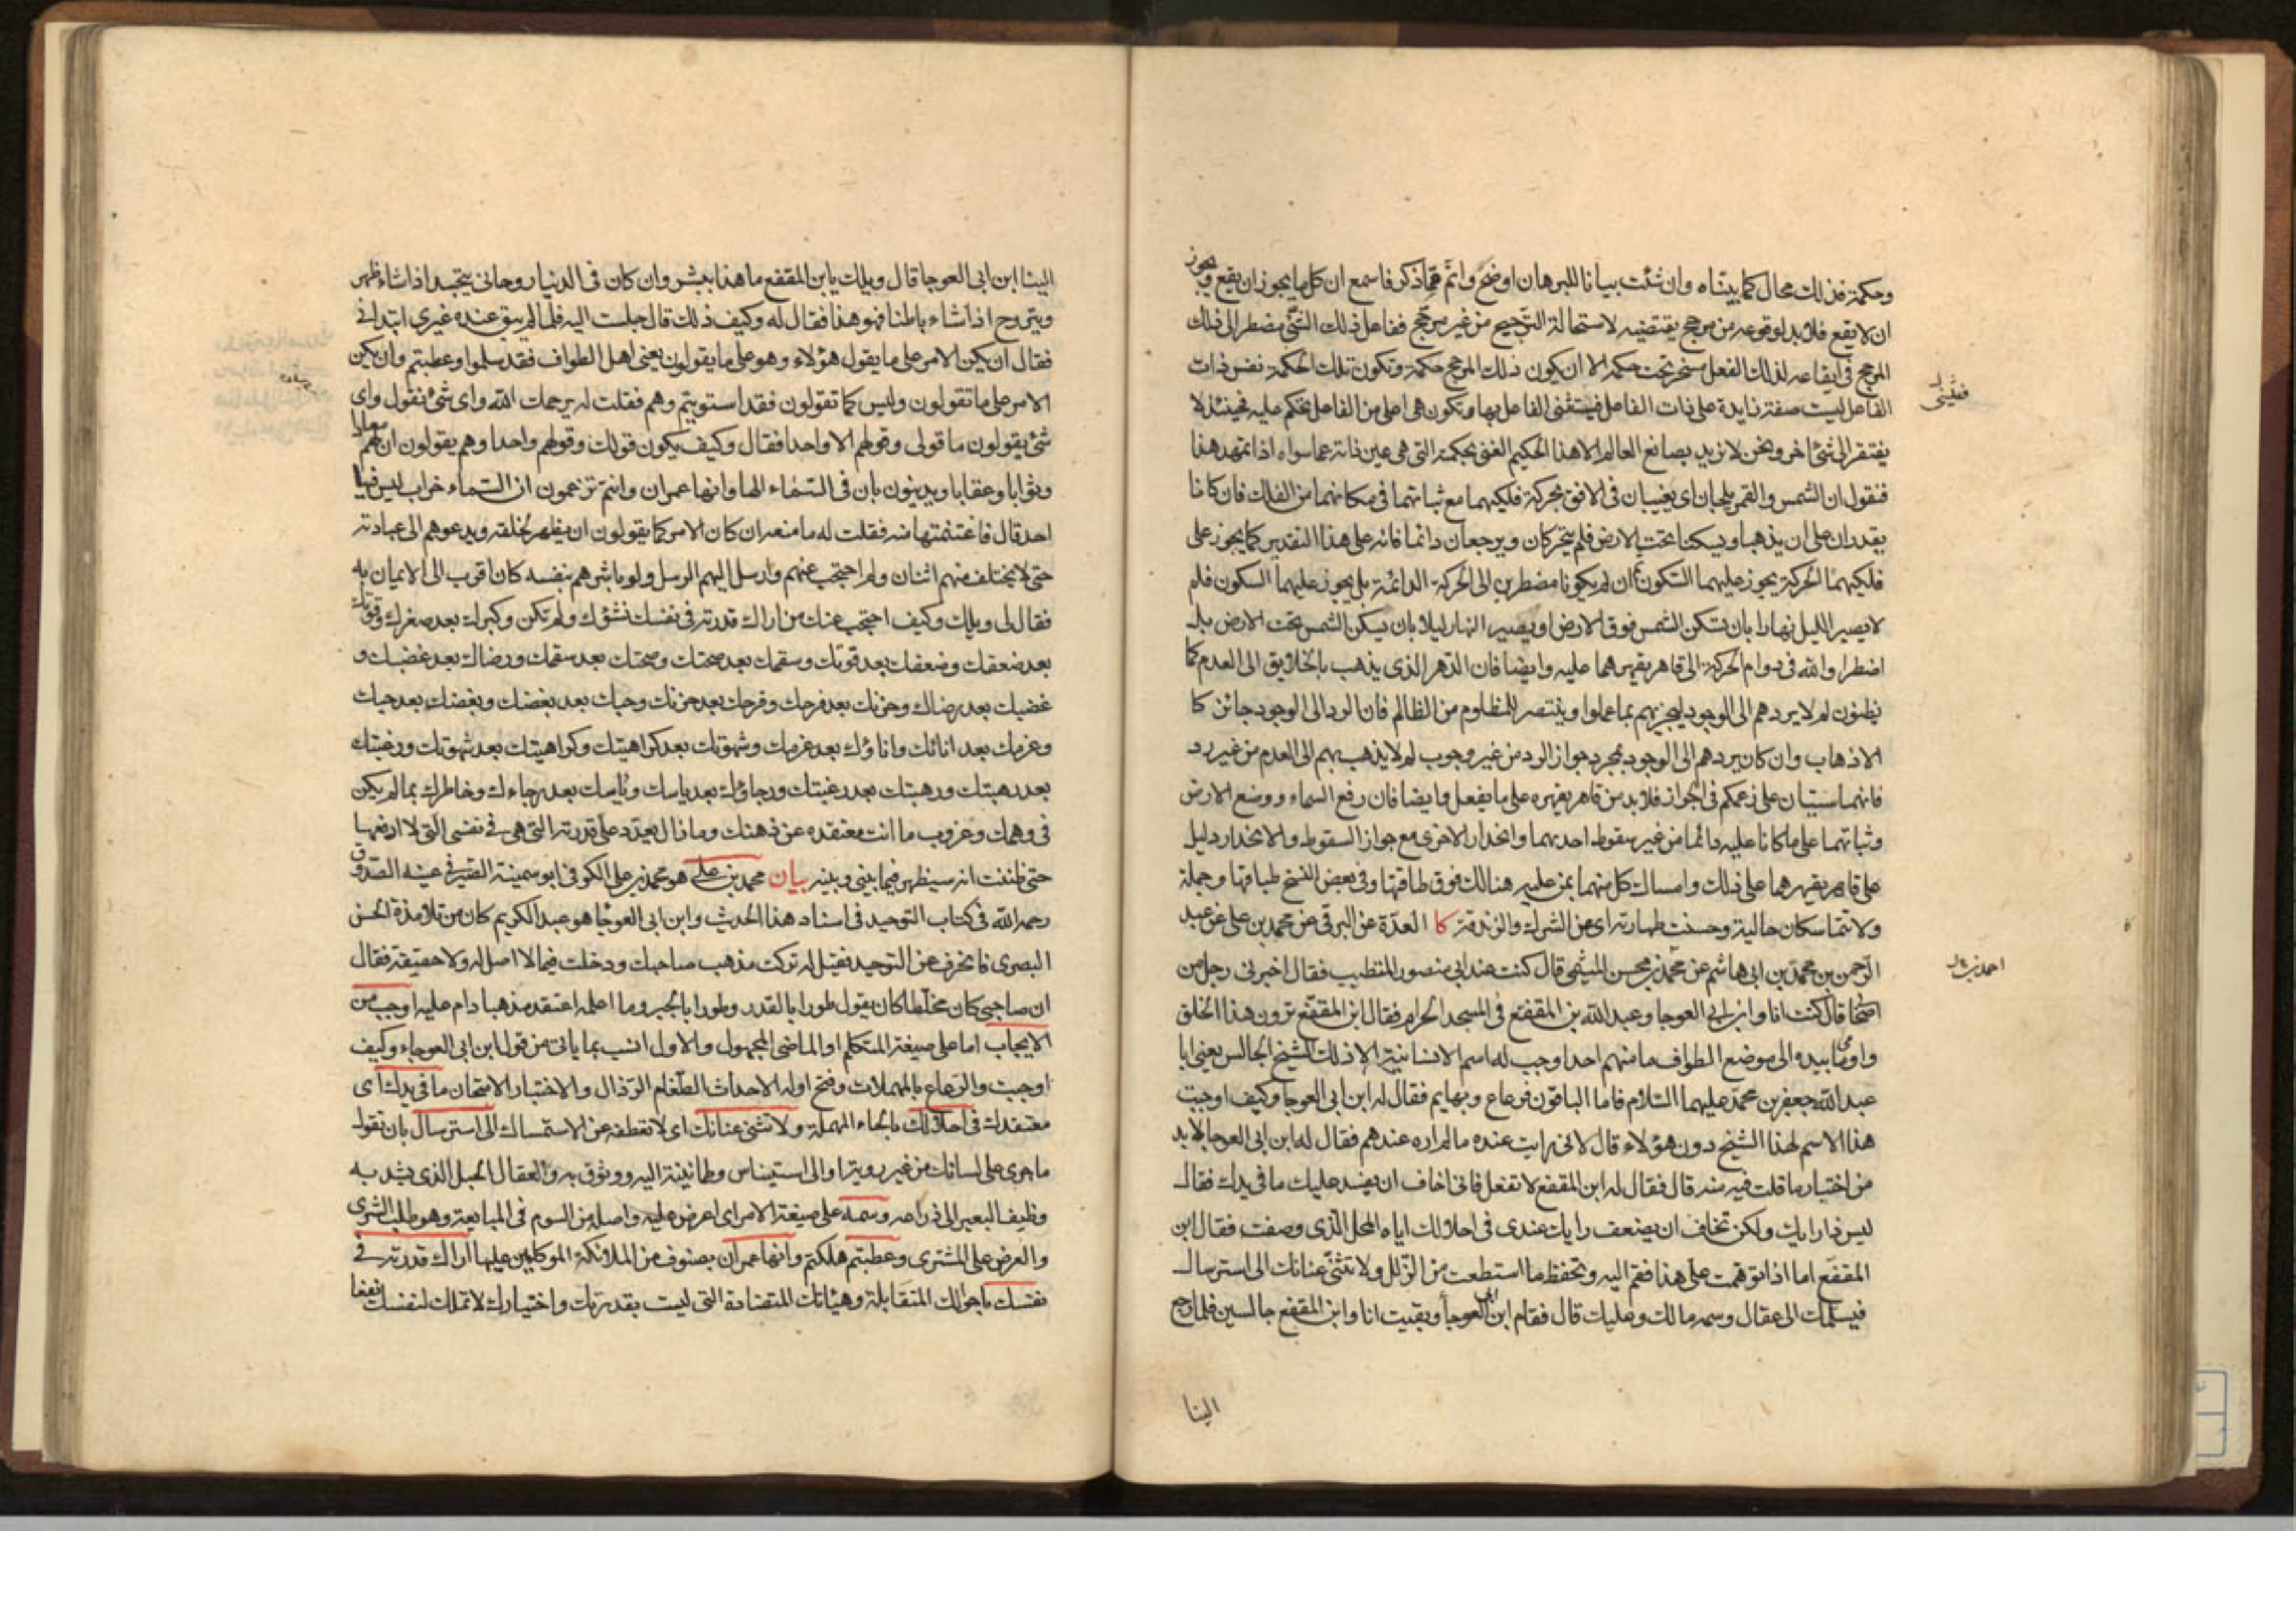 وحكمة فذلك محال كما بيناه وان شئت بيانا للبرهان اوضح واتم مما ذكر فاسمع ان كل ما يجوز ان يقع ويجوز
ان لا يقع فلا بد لوقوعه من مرجح يقتضيه لاستحالة الترجيح من غير مرجح ففاعل ذلك الشئ مضطر الى ذلك
المرجح في ايقاعه لذلك الفعل مسخر تحت حكمه الا ان يكون ذلك المرجح حكمة وتكون تلك الحكمة نفس ذات
الفاعل ليست صفة زايدة على ذات الفاعل فيستغنى الفاعل بها وتكون هي اعلى من الفاعل بحكم عليه فحينئذ لا
يفتقر الى شئ اخر ونحن لا نريد بصانع العالم الا هذا الحكيم الغنى بحكمته التي هي عين ذاته عما سواه اذا تمهد هذا
فنقول ان الشمس والقمر يلجان اى يغيبان في الافق بحركة فلكيهما مع ثباتهما في مكانهما من الفلك فان كانا
يقدران على ان يذهبا ويسكنا تحت الارض فلم يتحركان ويرجعان دائما فانه على هذا التقدير كما يجوز على
فلكيهما الحركة يجوز عليهما السكون ثم ان لم يكونا مضطرين الى الحركة الدائمة بل يجوز عليهما السكون فلم
لا يصير الليل نهارا بان تسكن الشمس فوق الارض او يصير النهار ليلا بان يسكن الشمس تحت الارض بل
اضطرا والله في دوام الحركة الى قاهر يقهرهما عليه وايضا فان الدهر الذي يذهب بالخلايق الى العدم كما
يظنون لم لا يردهم الى الوجود ليجزيهم بما عملوا وينتصر للمظلوم من الظالم فان الرد الى الوجود جائز كا
الاذهاب وان كان يردهم الى الوجود بمجرد جواز الرد من غير وجوب لم لا يذهب بهم الى العدم من غير رد
فانهما سيتان على زعمكم في الجواز فلا بد من قاهر يقهره على ما يفعل وايضا فان رفع السماء ووضع الارض
وثباتهما على ما كانا عليه دائما من غير سقوط احديهما وانحدار الاخرى مع جواز السقوط والانحدار دليل
على قاهر يقهرهما على ذلك وامساك كل منهما بمن عليه هنالك فوق طاقتها وفي بعض النسخ طباقها وجملة
ولا تتماسكان حالية وحسنت طهارته اى من الشرك والزندقة كا العدة عن البرقي عن محمد بن علي عن عبد
الرحمن بن محمد بن ابي هاشم عن محمد بن محسن الميثمي قال كنت عند ابي منصور المتطبب فقال اخبرني رجل من
اصحابي قال كنت انا وابن ابي العوجا وعبد الله بن المقفع في المسجد الحرام فقال ابن المقفع ترون هذا الخلق
واومأ بيده الى موضع الطواف ما منهم احد اوجب له اسم الانسانية الا ذلك الشيخ الجالس يعني ابا
عبد الله جعفر بن محمد عليهما السلام فاما الباقون فرعاع وبهايم فقال له ابن ابي العوجا وكيف اوجبت
هذا الاسم لهذا الشيخ دون هؤلاء قال لاني رايت عنده ما لم اره عندهم فقال له ابن ابي العوجا لا بد
من اختبار ما قلت فيه منه قال فقال له ابن المقفع لا تفعل فاني اخاف ان يفسد عليك ما في يدك فقال
ليس ذا رايك ولكن تخاف ان يضعف رايك عندى في احلالك اياه المحل الذى وصفت فقال ابن
المقفع اما اذا توهمت على هذا فقم اليه وتحفظ ما استطعت من الزلل ولا تثنى عنانك الى استرسال
فيسلمك الى عقال وسمه ما لك وعليك قال فقام ابن ابي العوجا وبقيت انا وابن المقفع جالسين فلما رجع
الينا
الينا ابن ابي العوجا قال ويلك يابن المقفع ما هذا ببشر وان كان في الدنيا روحاني يتجسد اذا شاء ظهر
ويتروح اذا شاء باطنا فهو هذا فقال له وكيف ذلك قال جلست اليه فلما لم يبق عنده غيرى ابتداني
فقال ان يكن الامر على ما يقول هؤلاء وهو على ما يقولون يعني اهل الطواف فقد سلموا وعطبتم وان يكن
الامر على ما تقولون وليس كما تقولون فقد استويتم وهم فقلت له يرحمك الله واى شئ نقول واى
شئ يقولون ما قولى وقولهم الا واحدا فقال وكيف يكون قولك وقولهم واحدا وهم يقولون ان لهم معادا
وثوابا وعقابا ويدينون بان في السماء الها وانها عمران وانتم تزعمون ان السماء خراب ليس فيها
احد قال فاغتنمتها منه فقلت له ما منعه ان كان الامر كما يقولون ان يظهر لخلقه ويدعوهم الى عبادته
حتى لا يختلف منهم اثنان ولم احتجب عنهم وارسل اليهم الرسل ولو باشرهم بنفسه كان اقرب الى الايمان به
فقال لى ويلك وكيف احتجب عنك من اراك قدرته في نفسك نشؤك ولم تكن وكبرك بعد صغرك وقوتك
بعد ضعفك وضعفك بعد قوتك وسقمك بعد صحتك وصحتك بعد سقمك ورضاك بعد غضبك و
غضبك بعد رضاك وحزنك بعد فرحك وفرحك بعد حزنك وحبك بعد بغضك وبغضك بعد حبك
وعزمك بعد اناتك واناؤك بعد عزمك وشهوتك بعد كراهيتك وكراهيتك بعد شهوتك ورغبتك
بعد رهبتك ورهبتك بعد رغبتك ورجاؤك بعد ياسك وياسك بعد رجاءك وخاطرك بما لم يكن
في وهمك وعزوب ما انت معتقده عن ذهنك وما زال يعدد على قدرته التي هي في نفسى التي لا ادفعها
حتى ظننت انه سيظهر فيما بيني وبينه بيان محمد بن علي هو محمد بن علي الكوفي ابو سمينة الصيرفي عينه الصدوق
رحمه الله في كتاب التوحيد في اسناد هذا الحديث وابن ابي العوجا هو عبد الكريم كان من تلامذة الحسن
البصرى فانحرف عن التوحيد فقيل له تركت مذهب صاحبك ودخلت فيما لا اصل له ولا حقيقة فقال
ان صاحبي كان مخلطا كان يقول طورا بالقدر وطورا بالجبر وما اعلمه اعتقد مذهبا دام عليه اوجب من
الايجاب اما على صيغة المتكلم او الماضى المجهول والاول انسب بما ياتي من قول ابن ابي العوجاء وكيف
اوجبت والرعاع بالمهملات وفتح اوله الاحداث الطغام الرذال والاختبار الامتحان ما في يدك اى
معتقدك في احلالك بالحاء المهملة ولا تثنى عنانك اى لا تعطفه عن الاستمساك الى استرسال بان تقول
ما جرى على لسانك من غير روية او الى استيناس وطمانينة اليه ووثوق به والعقال الحبل الذي يشد به
وظيف البعير الى ذراعه وسمه على صيغة الامر اى اعرض عليه واصله من السوم في المبايعة وهو طلب الشرى
والعرض على المشترى وعطبتم هلكتم وانها عمران بصنوف من الملائكة الموكلين عليها اراك قدرته في
نفسك باحوالك المتقابلة وهيئاتك المتضادة التي ليست بقدرتك واختيارك لا تملك لنفسك نفعا